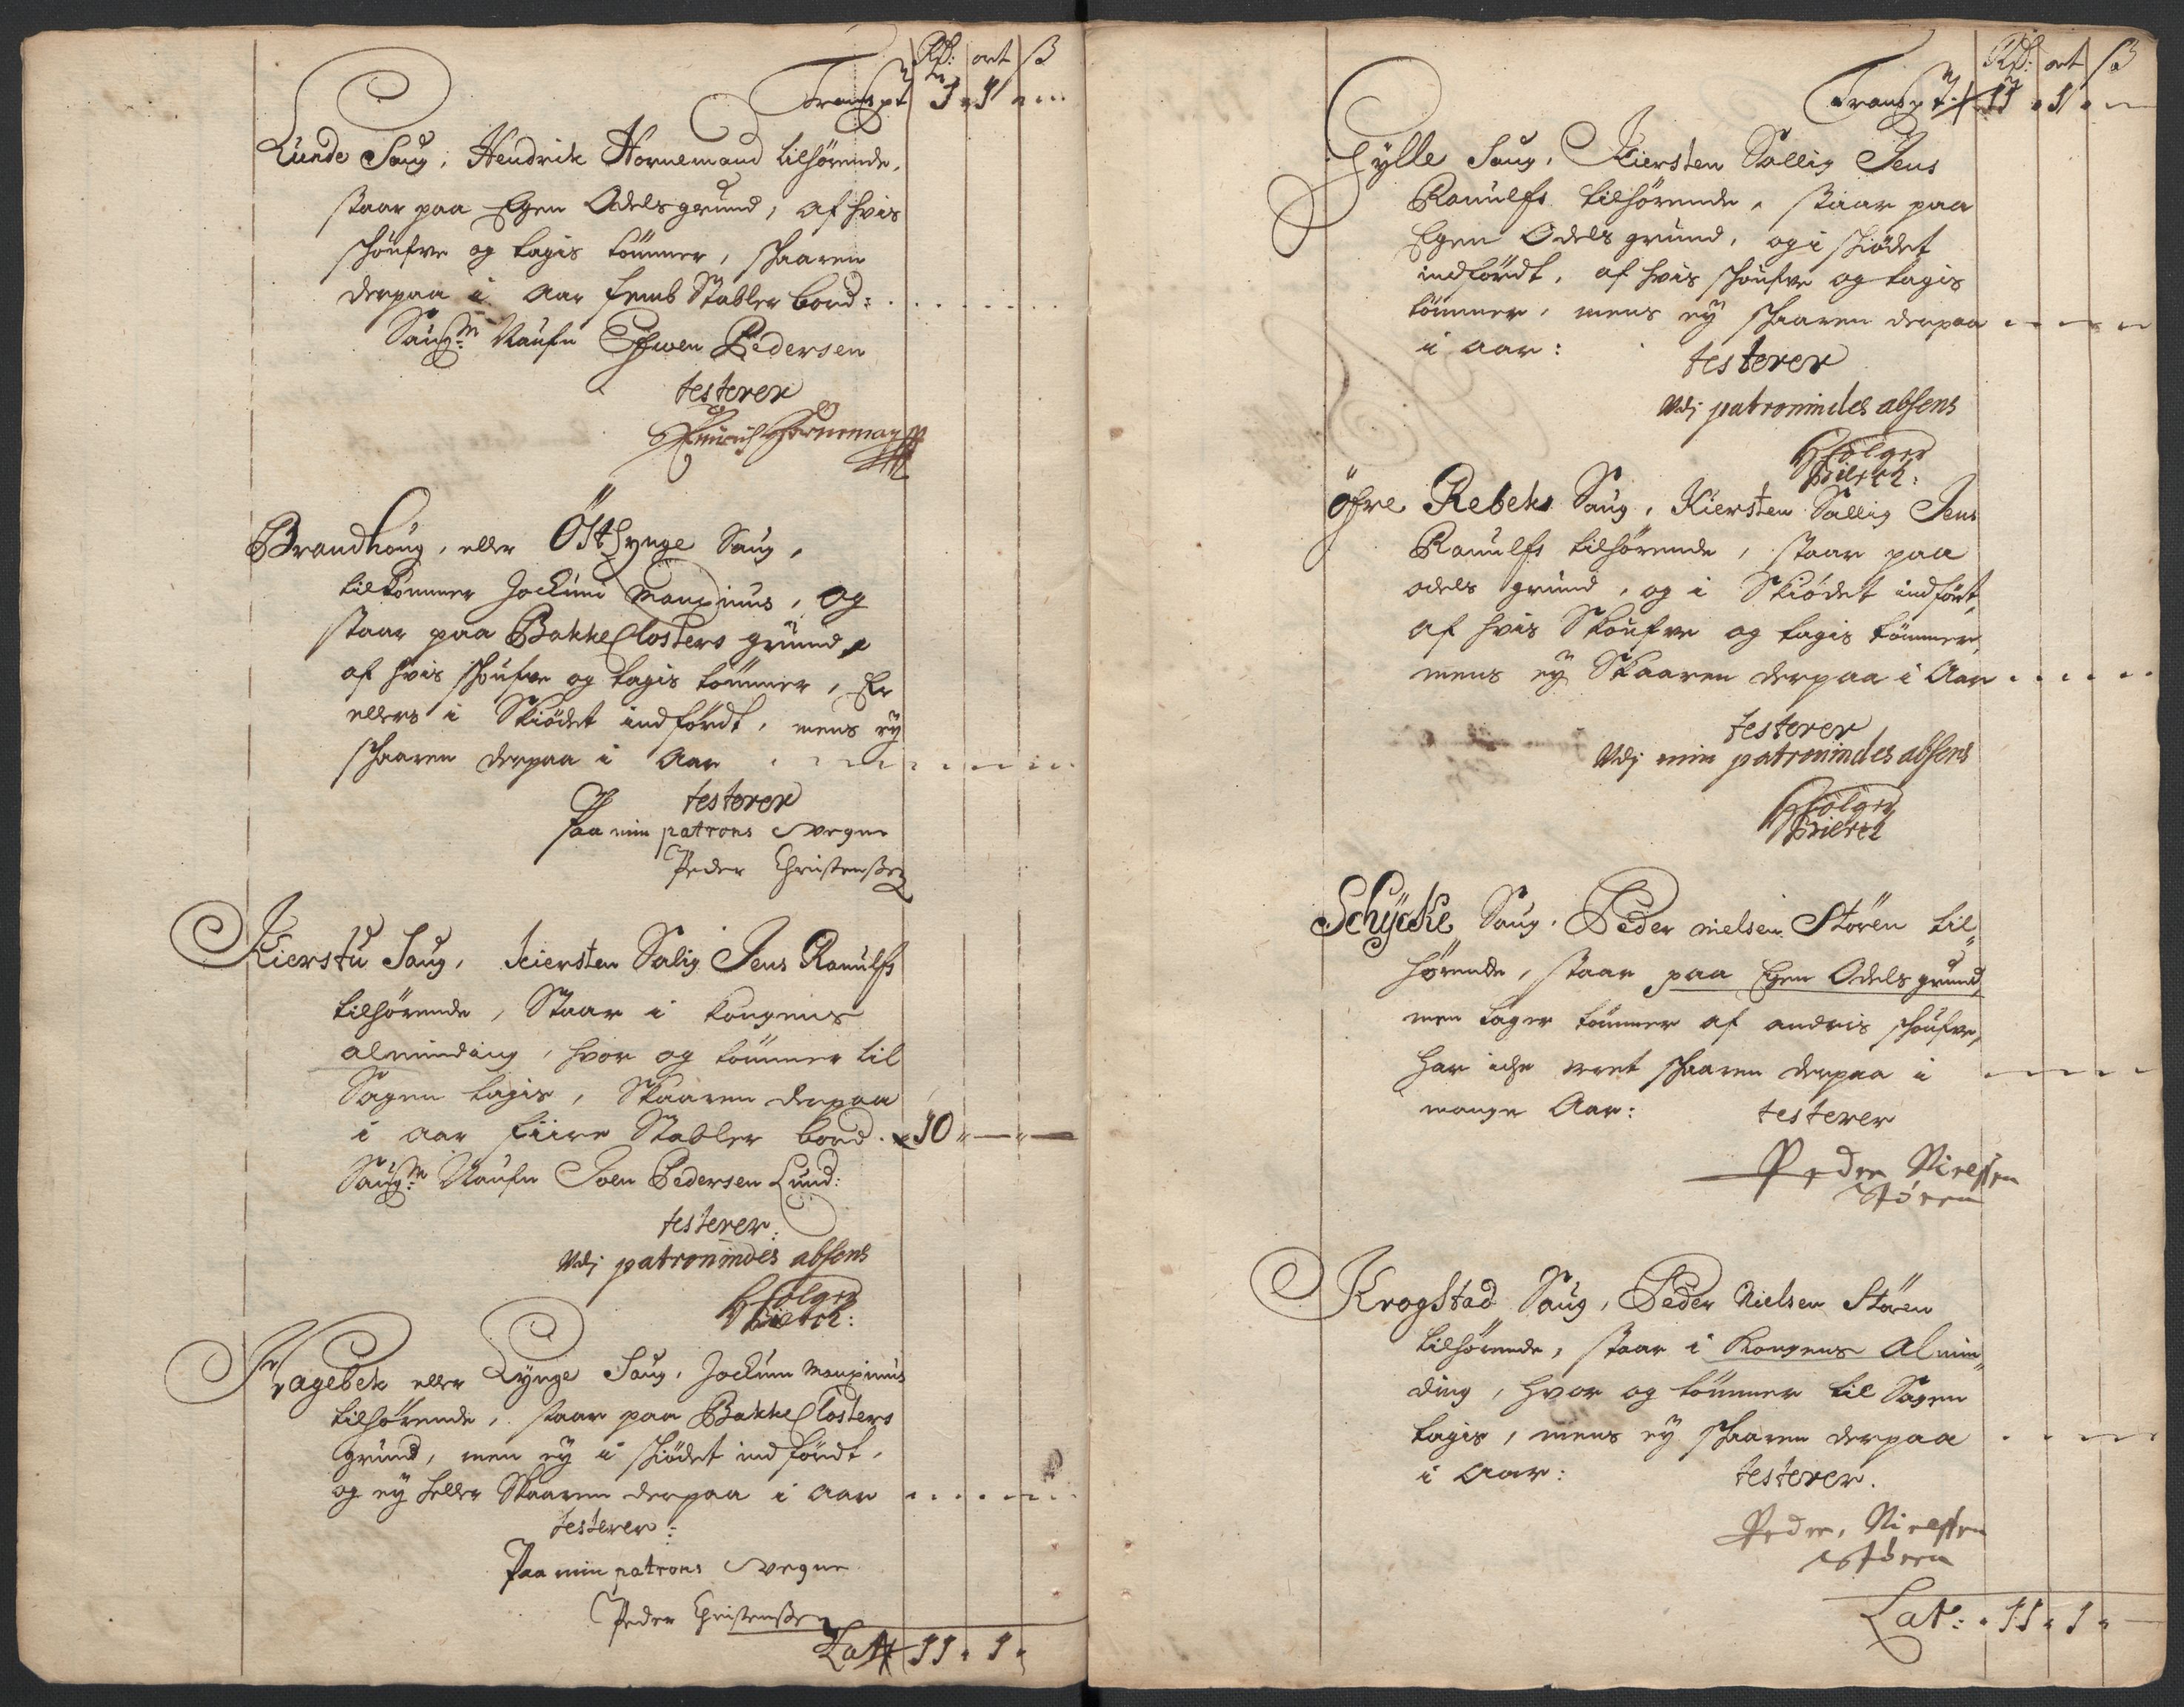 Rdr: ort ß
Transpt 1 " 1 "
Lunde Saug, Hendrick Hornemand tilhørende,
staar paa Egen Odelsgrund, af hvis
schoufve og tagis tømmer, schaaren
derpaa i Aar femb Stabler bord:
Saugm: Naufn Eschwen Pedersen
testerer
Hinrich Horneman
Brandhoug, eller ÖstLynge Saug,
tilkommer Jochim, og
staar paa BakkeClosters grund,
af hvis schoufve og tagis tømmer, Er
ellers i Skiödet indfördt, mens ey
schaaren derpaa i Aar
testerer
Paa min patrons vegne
Peder Christenßen
Kierstu Saug, Kiersten Salig Jens Ranulfs
tilhørende, Staar i Kongens
alminding, hvor og tømmer til
Sagen tagis, Skaaren derpaa
i aar fiire Stabler bord. 10 " — " —
Saugm: Naufn Joen Pedersen Lund:
testerer:
Udj patronindes absens
Holger
Bierck:
Fragebek eller Lynge Saug, Jochum
tilhørende, staar paa BakkeClosters
grund, men ey i schiödet indfördt,
og ey heller Skaaren derpaa i Aar
testerer:
Paa min patrons vegne
Peder Christenßen
Latr 11 " 1 "
Rdr: ort ß
Transpt: 11 " 1 " —
Gylle Saug, Kiersten Sallig Jens
Ranulfs tilhørende, staar paa
Egen Odels grund, og i schiödet
indfördt, af hvis schoufve og tagis
tömmer, mens ey schaaren derpaa
i aar:
testerer
Udj patronindes absens
Holger
Bierck:
Öfre Rebeks Saug, Kiersten Sallig Jens
Ranulfs tilhørende, staar paa
odels grund, og i Skiödet indfört,
af hvis Skoufve og tagis tömmer,
mens ey Skaaren derpaa i Aar
testerer
Udj min patronindes absens
Holger
Bierck
Schÿcke Saug, Peder Nielsen Stören til„
hørende, staar paa Egen Odels grund,
men tager tømmer af andris schoufve,
har iche veret schaaren derpaa i
mange Aar:
testerer
Peder Nielssen
Støren
Krogstad Saug, Peder Nielsen Stören
tilhørende, staar i Kongens Almin„
ding, hvor og tømmer til Sagen
tagis, mens ey schaaren derpaa
i Aar:
testerer.
Peder, Nielssen
Støren
Latr: 11 " 1 " —